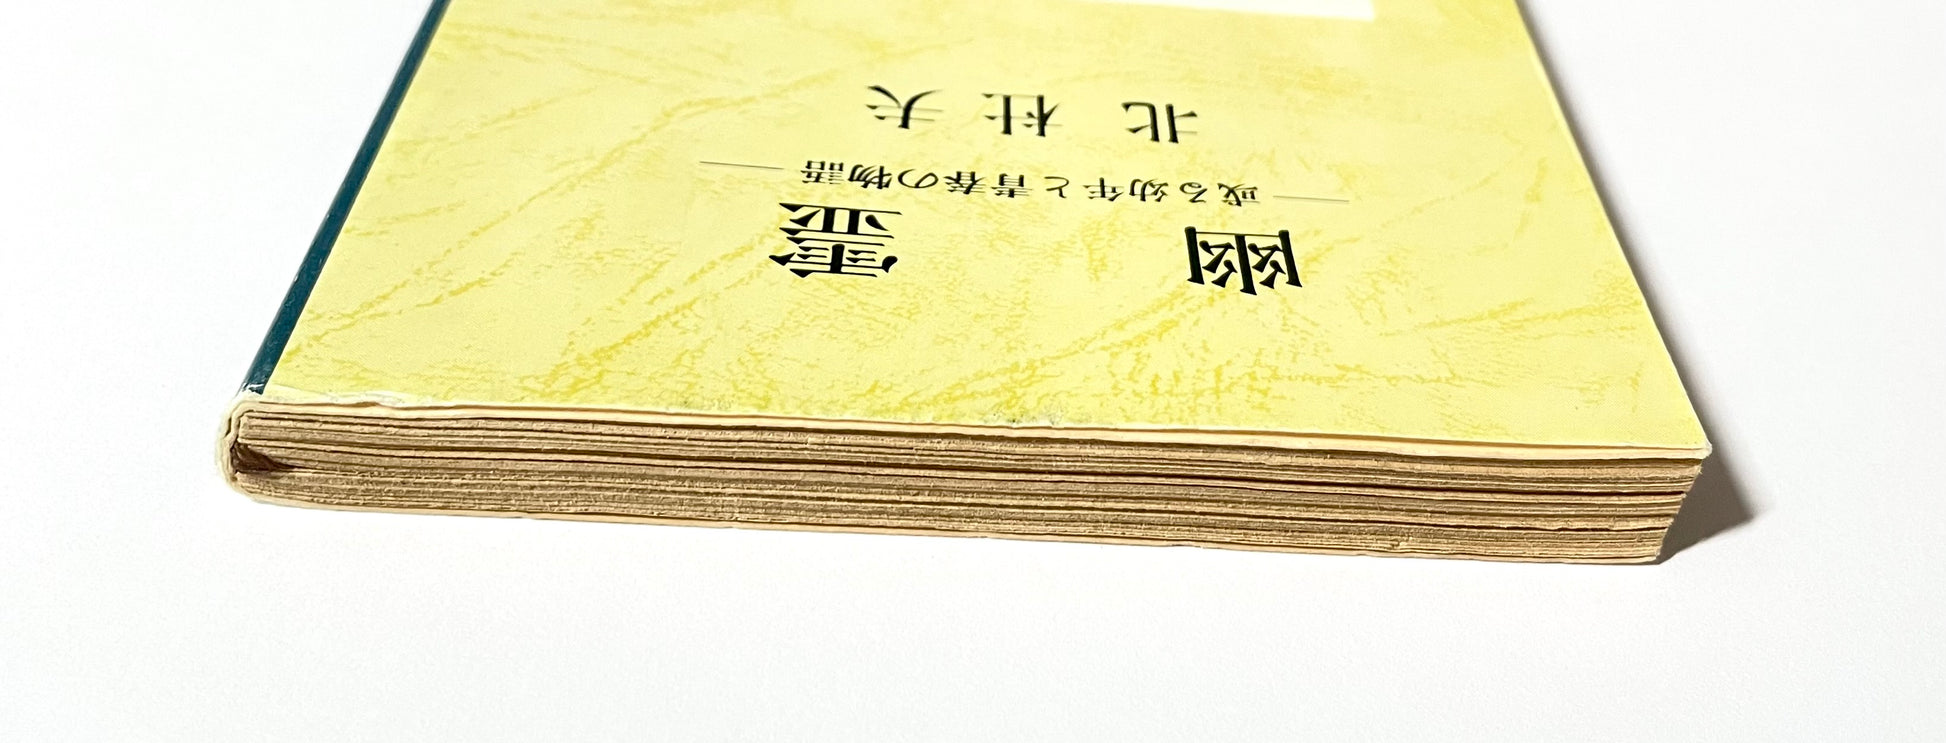 幽霊
―或る幼年と青春の物語―
北杜夫